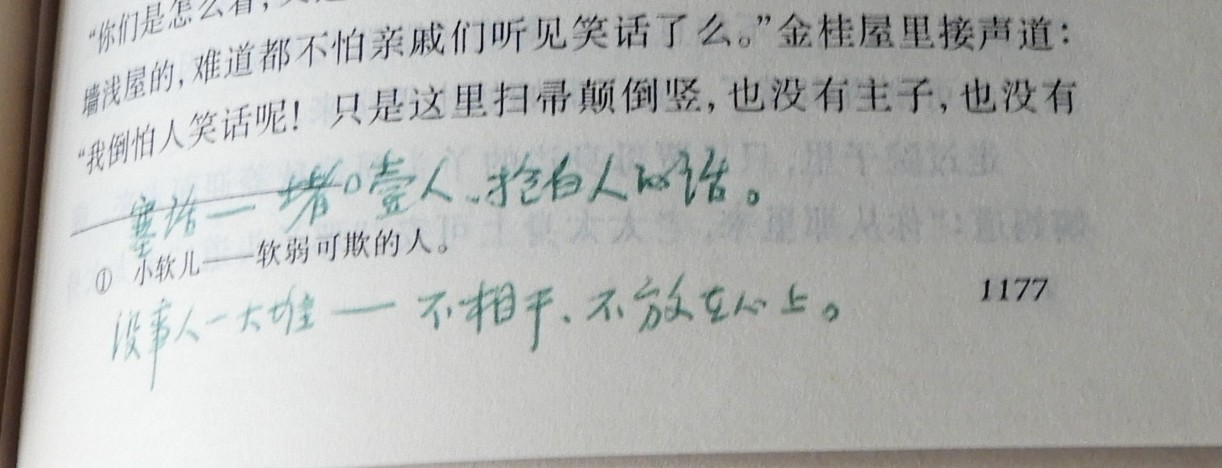 “你们是怎么着，又
墙浅屋的，难道都不怕亲戚们听见笑话了么。”金桂屋里接声道：
“我倒怕人笑话呢！只是这里扫帚颠倒竖，也没有主子，也没有
塞话一堵口噎人、抢白人的话。
① 小软儿——软弱可欺的人。
没事人一大堆 — 不相干、不放在心上。
1177